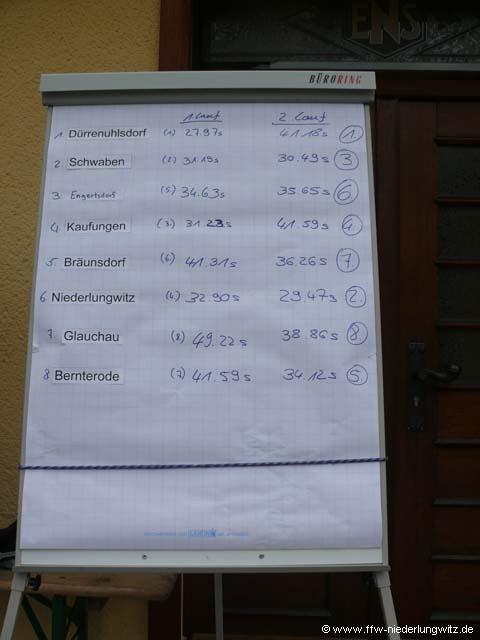 ENS
BÜRORING
1 Lauf 2 Lauf
1. Dürrenuhlsdorf (1) 27.97s 41.18s 1.
2. Schwaben (2) 31.19s 30.49s 3
3. Engertsdorf (5) 34.63s 35.65s 6.
4. Kaufungen (3) 31.23s 41.59s 4.
5. Bräunsdorf (6) 41.31s 36.26s 7
6 Niederlungwitz (4) 32.90s 29.47s 2.
7. Glauchau (8) 49.22s 38.86s 8.
8 Bernterode (7) 41.59s 34.12s 5.
© www.ffw-niederlungwitz.de